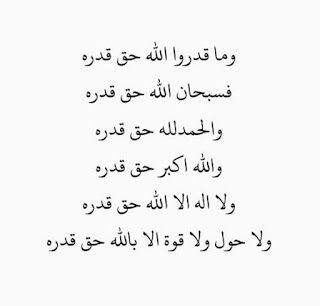 وما قدروا الله حق قدره
فسبحان الله حق قدره
والحمدلله حق قدره
والله اكبر حق قدره
ولا اله الا الله حق قدره
ولا حول ولا قوة الا بالله حق قدره